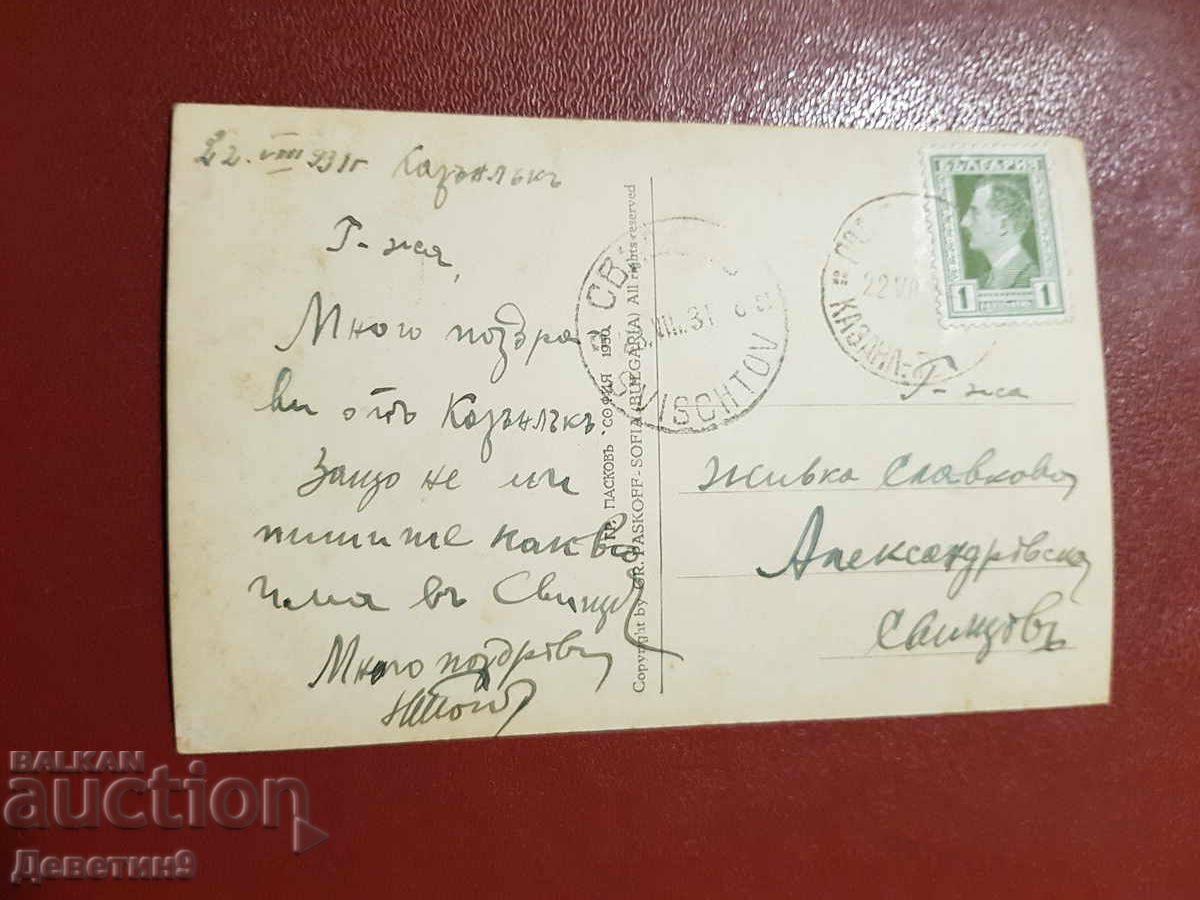 22. VIII 931г Казънлъкъ
Г-жа,
Много поздра
ви отъ Казънлъкъ.
Защо не ми
пишите какво
има въ Свищов
Много поздрави
ГР. ПАСКОВЪ - СОФИЯ 1930.
Copyright by GR. PASKOFF - SOFIA (BULGARIA) All rights reserved
СВ
VIII.31
SVISCHTOV
22 VIII
КАЗАНЛ
БЪЛГАРИЯ
1 1
Г-жа
Живка Славкова
Александровска
Свищовъ
BALKAN
auction
Деветин9